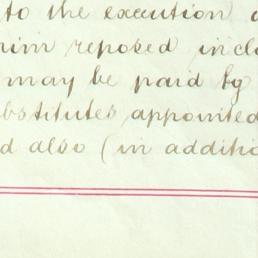 to the execution o
him reposed inclu
may be paid by
bstitutes appointed
d also (in additio